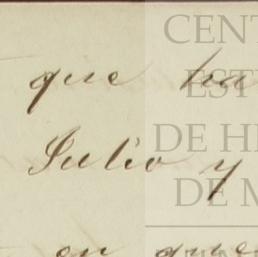 que ha
Julio y
en que
CENT
EST
DE HI
DE M